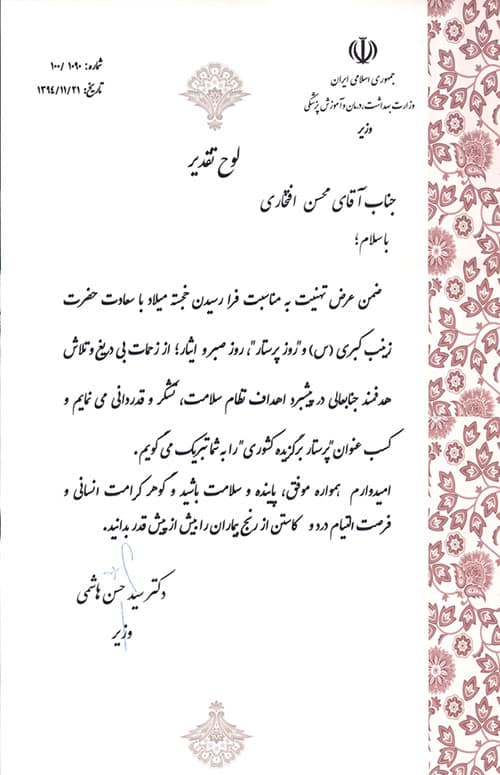 جمهوری اسلامی ایران
وزارت بهداشت، درمان و آموزش پزشکی
وزیر
شماره: ۱۰۰/۱۰۹۰
تاریخ: ۱۳۹۴/۱۱/۲۱
لوح تقدیر
جناب آقای محسن افتخاری
با سلام؛
ضمن عرض تهنیت به مناسبت فرا رسیدن خجسته میلاد با سعادت حضرت
زینب کبری (س) و "روز پرستار"، روز صبر و ایثار؛ از زحمات بی دریغ و تلاش
هدفمند جنابعالی در پیشبرد اهداف نظام سلامت، تشکر و قدردانی می نمایم و
کسب عنوان "پرستار برگزیده کشوری" را به شما تبریک می گویم.
امیدوارم همواره موفق، پاینده و سلامت باشید و گوهر کرامت انسانی و
فرصت التیام درد و کاستن از رنج بیماران را بیش از پیش قدر بدانید.
دکتر سید حسن هاشمی
وزیر